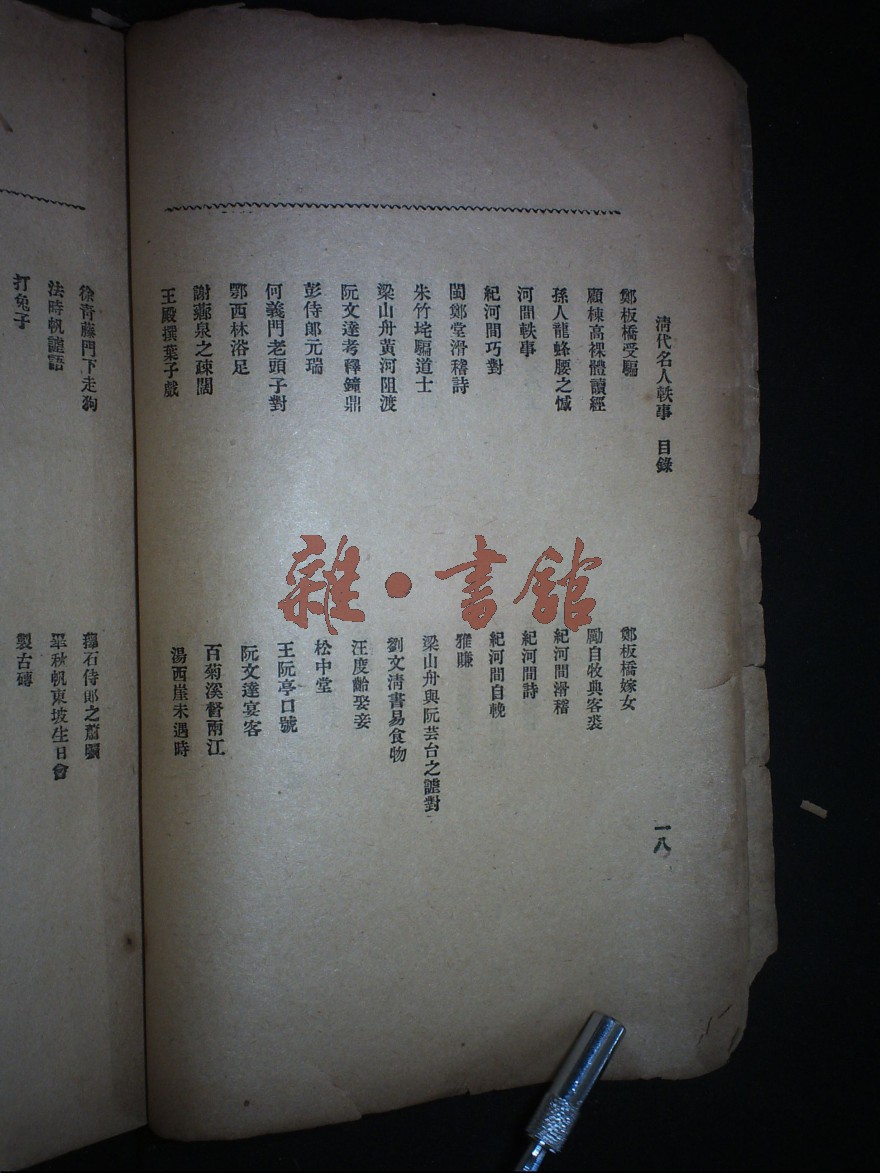 清代名人軼事　目錄
一八
鄭板橋受騙
鄭板橋嫁女
顧棟高裸體讀經
勵自牧典客裘
孫人龍蜂腰之憾
紀河間滑稽
河間軼事
紀河間詩
紀河間巧對
紀河間自輓
閩鄭堂滑稽詩
雅賺
朱竹垞騙道士
梁山舟與阮芸台之謔對
梁山舟黃河阻渡
劉文清書易食物
阮文達考釋鐘鼎
汪度齡娶妾
彭侍郎元瑞
松中堂
何義門老頭子對
王阮亭口號
鄂西林浴足
阮文達宴客
謝薌泉之疎闊
百菊溪督兩江
王殿撰葉子戲
湯西崖未遇時
徐青藤門下走狗
蘀石侍郎之蕭曠
法時帆謔語
畢秋帆東坡生日會
打兔子
製古磚
雜·書館